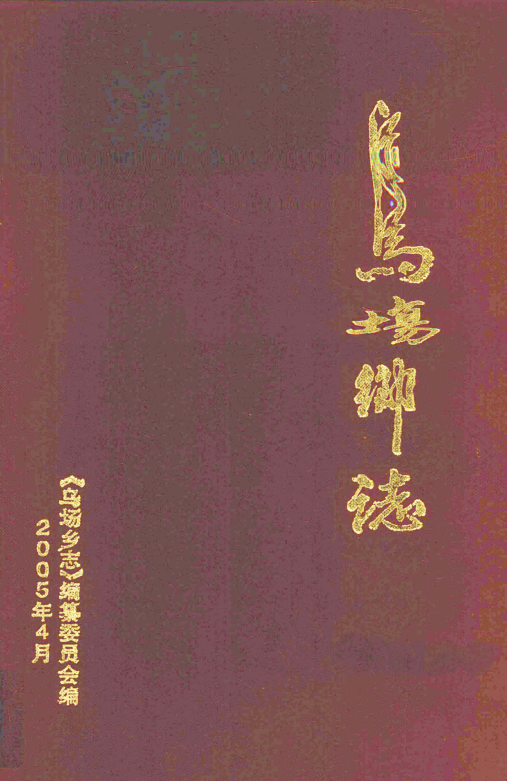 馬場鄉誌
《马场乡志》编纂委员会编
2005年4月